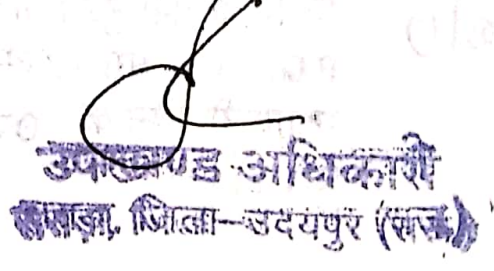 उपखण्ड अधिकारी
जिला-उदयपुर (राज.)